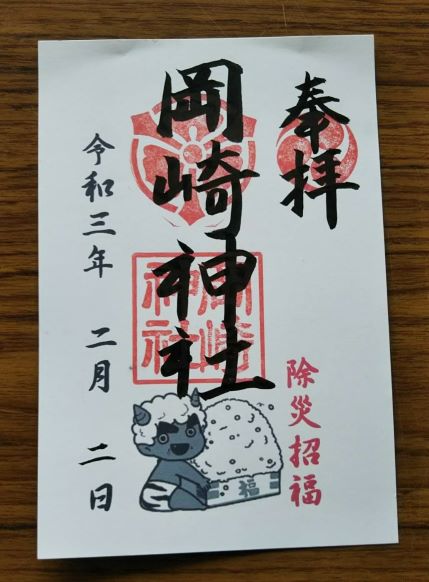 奉拝
岡崎神社
岡崎神社
除災招福
福
令和三年 二月 二日